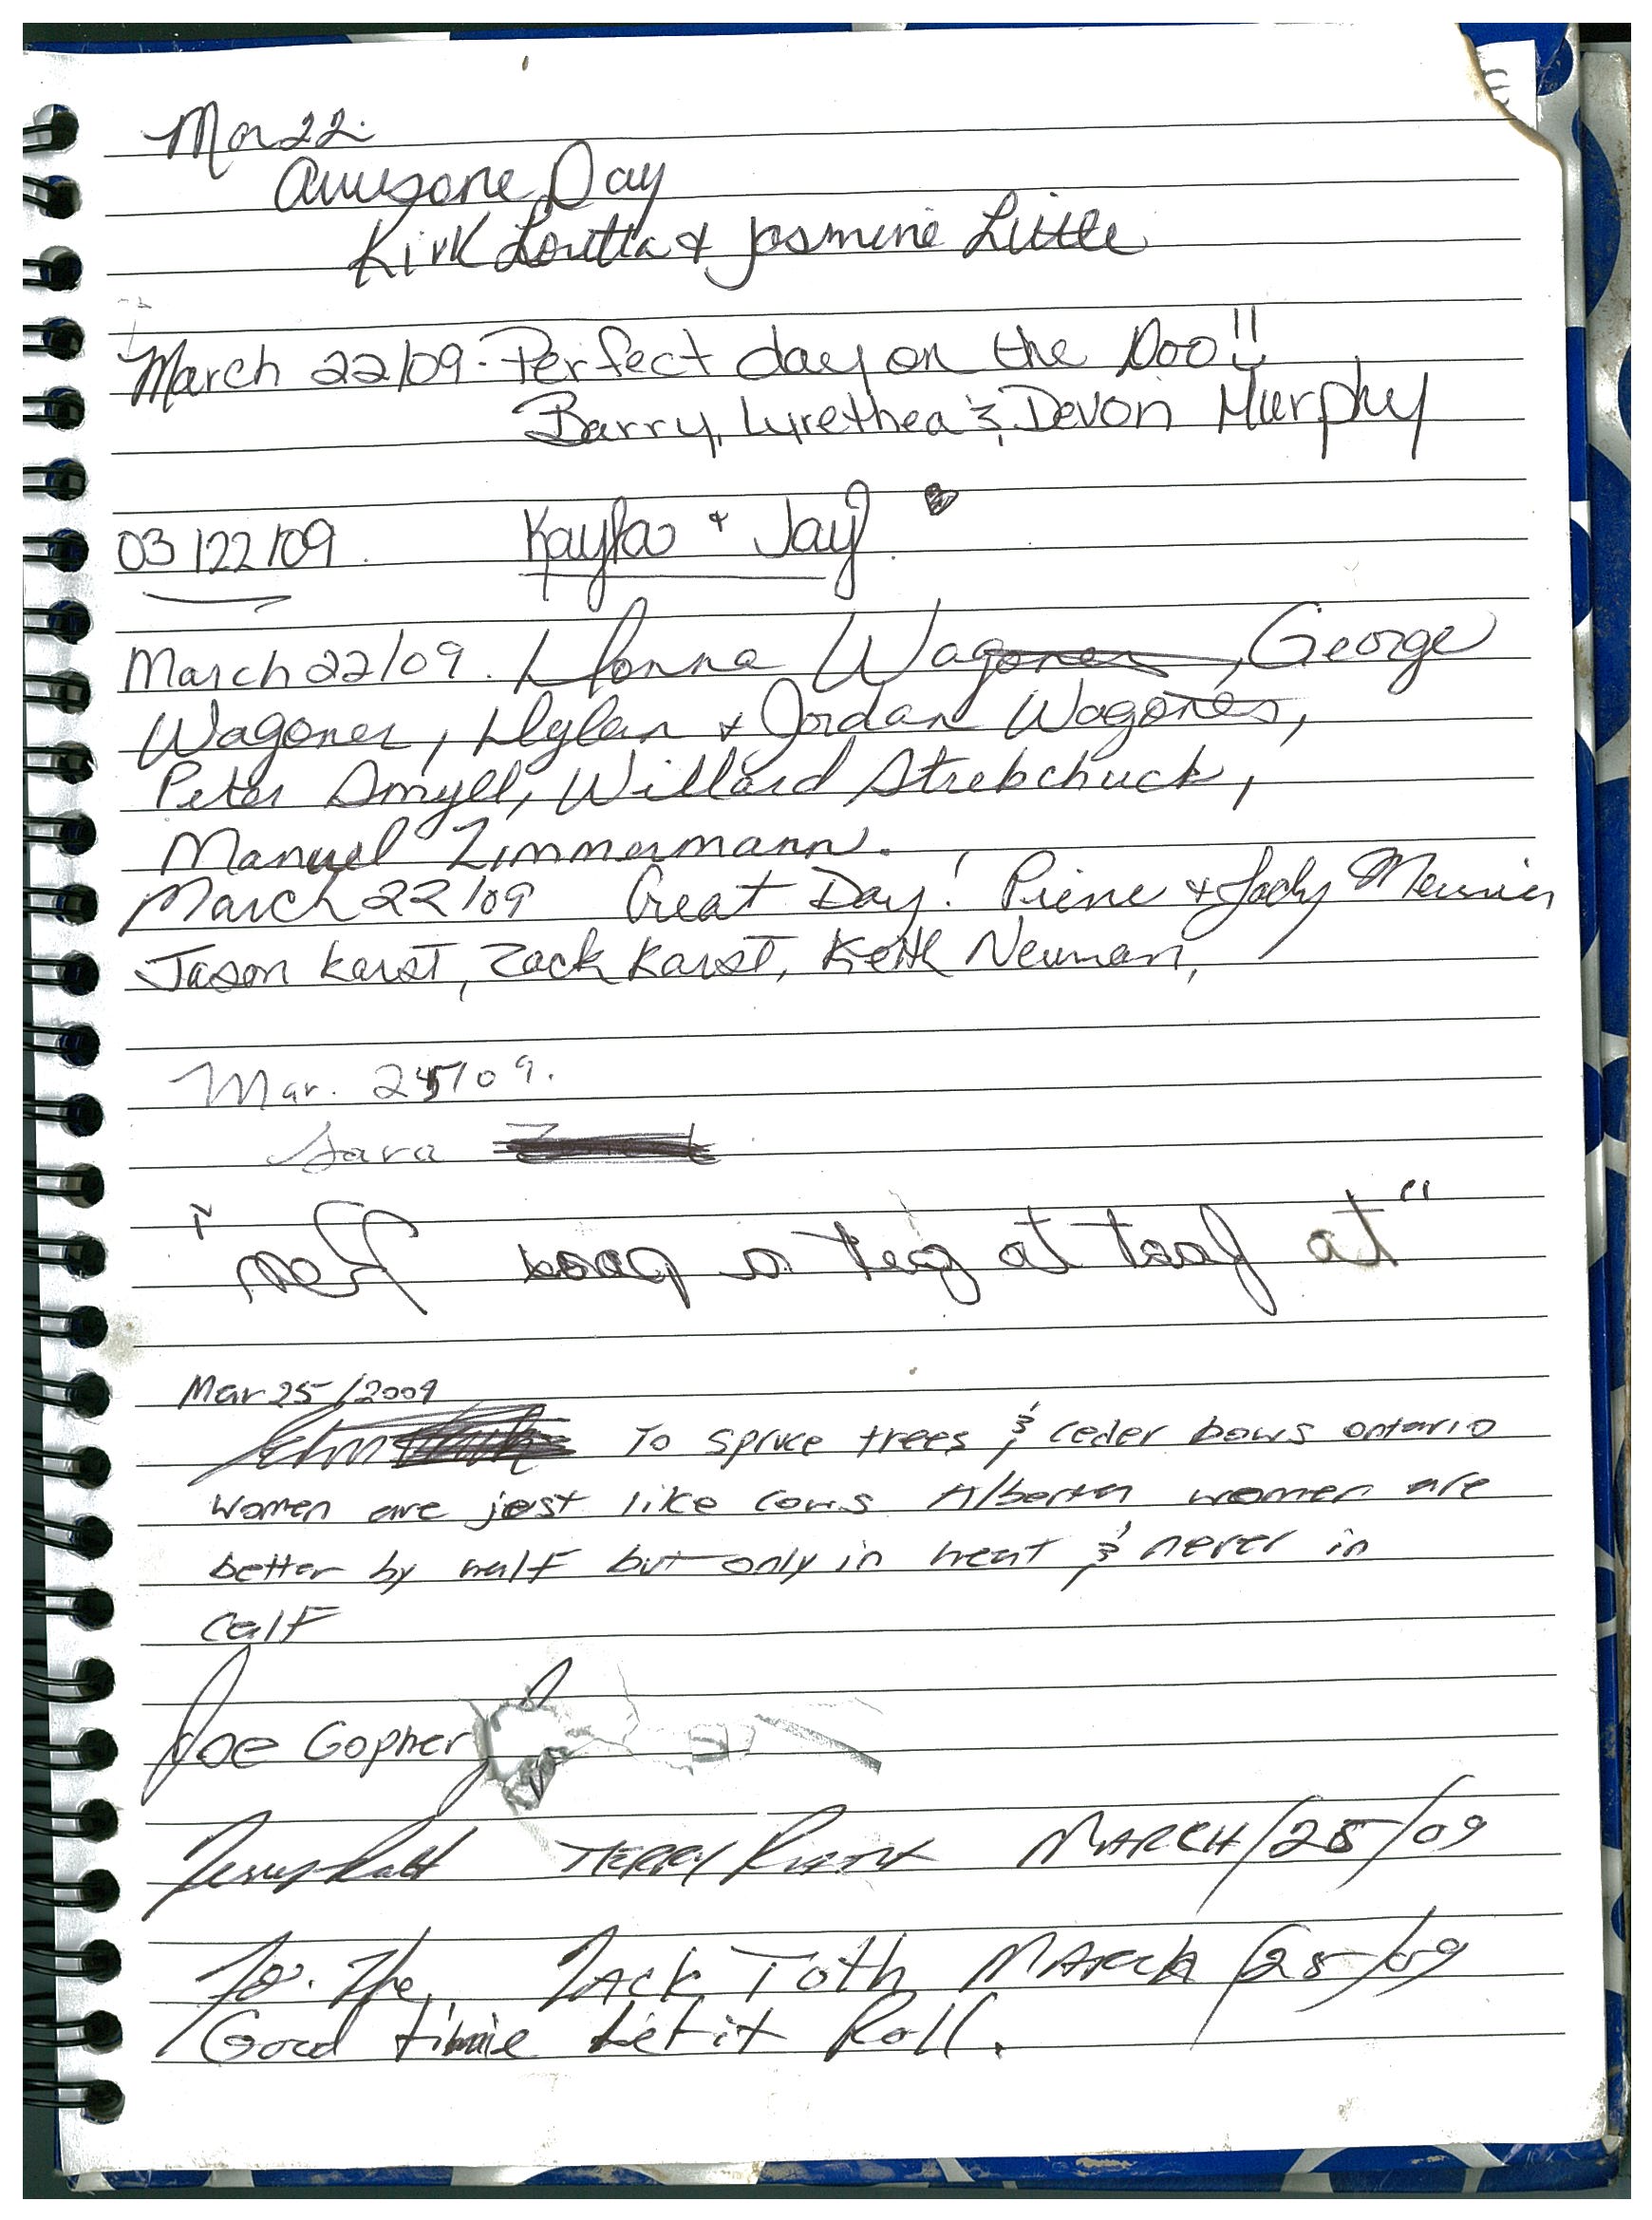 Mar 22.
Awesone Day
Kirk Loretta & Jasmine Little
March 22/09. Perfect day on the Doo!!
Barry, Lyrethea & Devon Murphy
03/22/09. Kayla + Jay
March 22/09. Donna Wagoner, George
Wagoner, Dylan + Jordan Wagoner,
Peter Smyll, Willard Strebchuck,
Manuel Zimmermann.
March 22/09 Great Day! Pierre + Jody Meunier
Jason Karst, Zack Karst, Keith Neuman,
Mar. 25/09.
Sara
"ta fast to get a good
Mar 25/2009
To spruce trees & ceder bows ontario
women are jost like cows Alberta women are
better by half but only in heat & never in
calf
Joe Gopher
TERRY MARCH/25/09
To. The, Jack Toth MARCH/25/09
Good time Let it Roll.